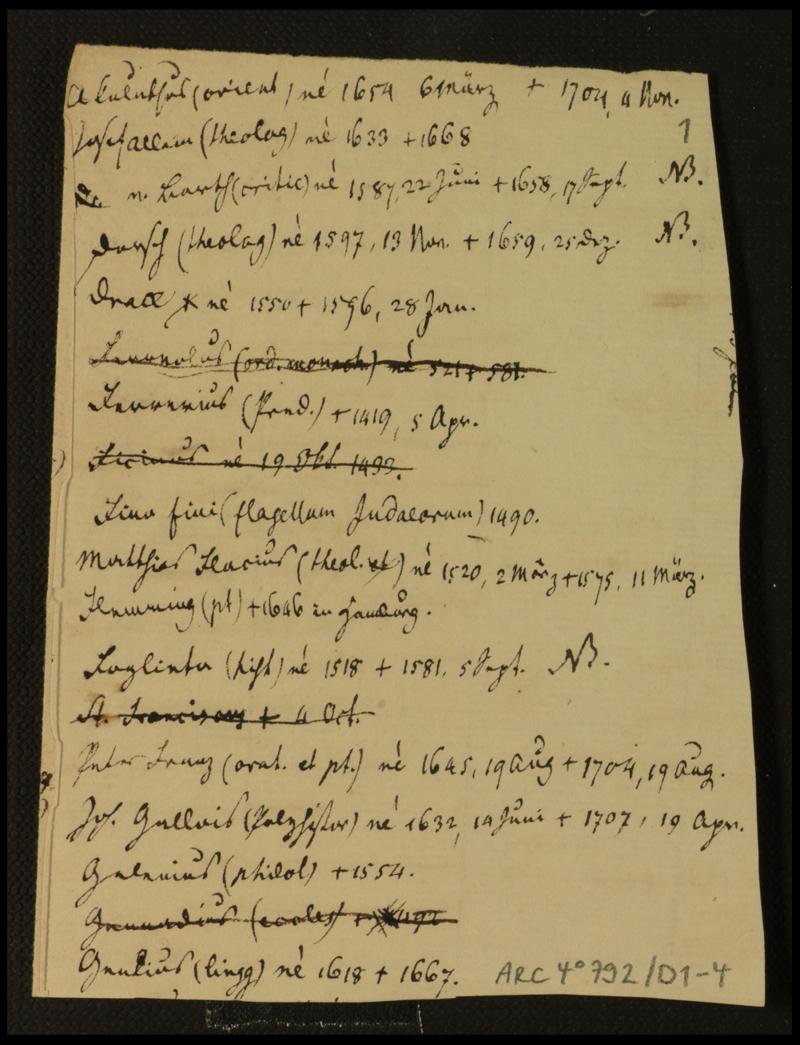 Akoluthus (orient) né 1654 6 März + 1704, 4 Nov.
1
Josef allein (theolog) né 1633 + 1668
v. Barth (critic) né 1587, 22 Juni + 1658, 17 Sept. NB.
Dorsch (theolog) né 1597, 13 Nov. + 1659, 25 Dez. NB.
né 1550 + 1596, 28 Jan.
(ord. monach.) né 521 + 581.
Ferrerius (Pred.) + 1419, 5 Apr.
Ficinus né 19 Okt. 1433.
Fino fini (flagellum Judaeorum) 1490.
Matthias Flacius (theol. et) né 1520, 2 März + 1575, 11 März.
Flemming (pt) + 1646 zu Hamburg.
Foglieta (hist) né 1518 + 1581, 5 Sept. NB.
St. Franciscus + 4 Oct.
Peter Franz (orat. et pt.) né 1645, 19 Aug + 1704, 19 Aug.
Joh. Gallois (Polyhistor) né 1632, 14 Juni + 1707, 19 Apr.
Gelenius (philol) + 1554.
Gennadius (eccles)
Gentius (lingg) né 1618 + 1667.
ARC 4° 792/D1-4